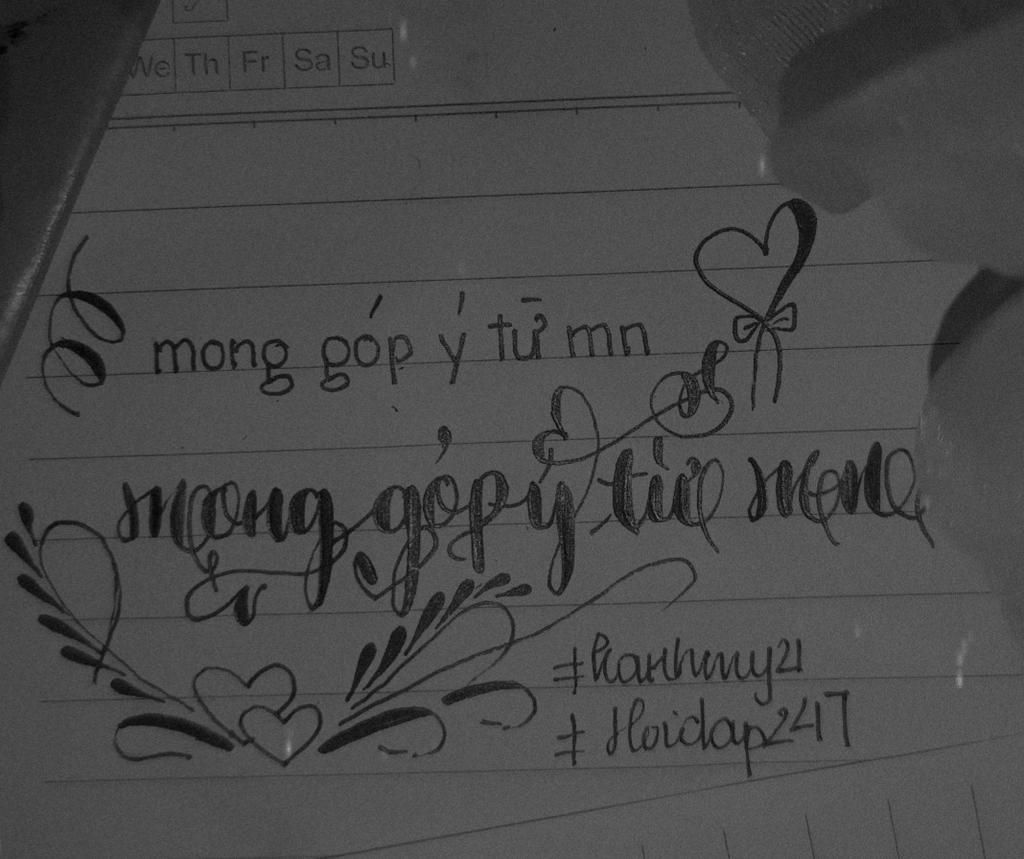 We Th Fr Sa Su
mong góp ý từ mn
mong góp ý từ mn
# Hoidap247